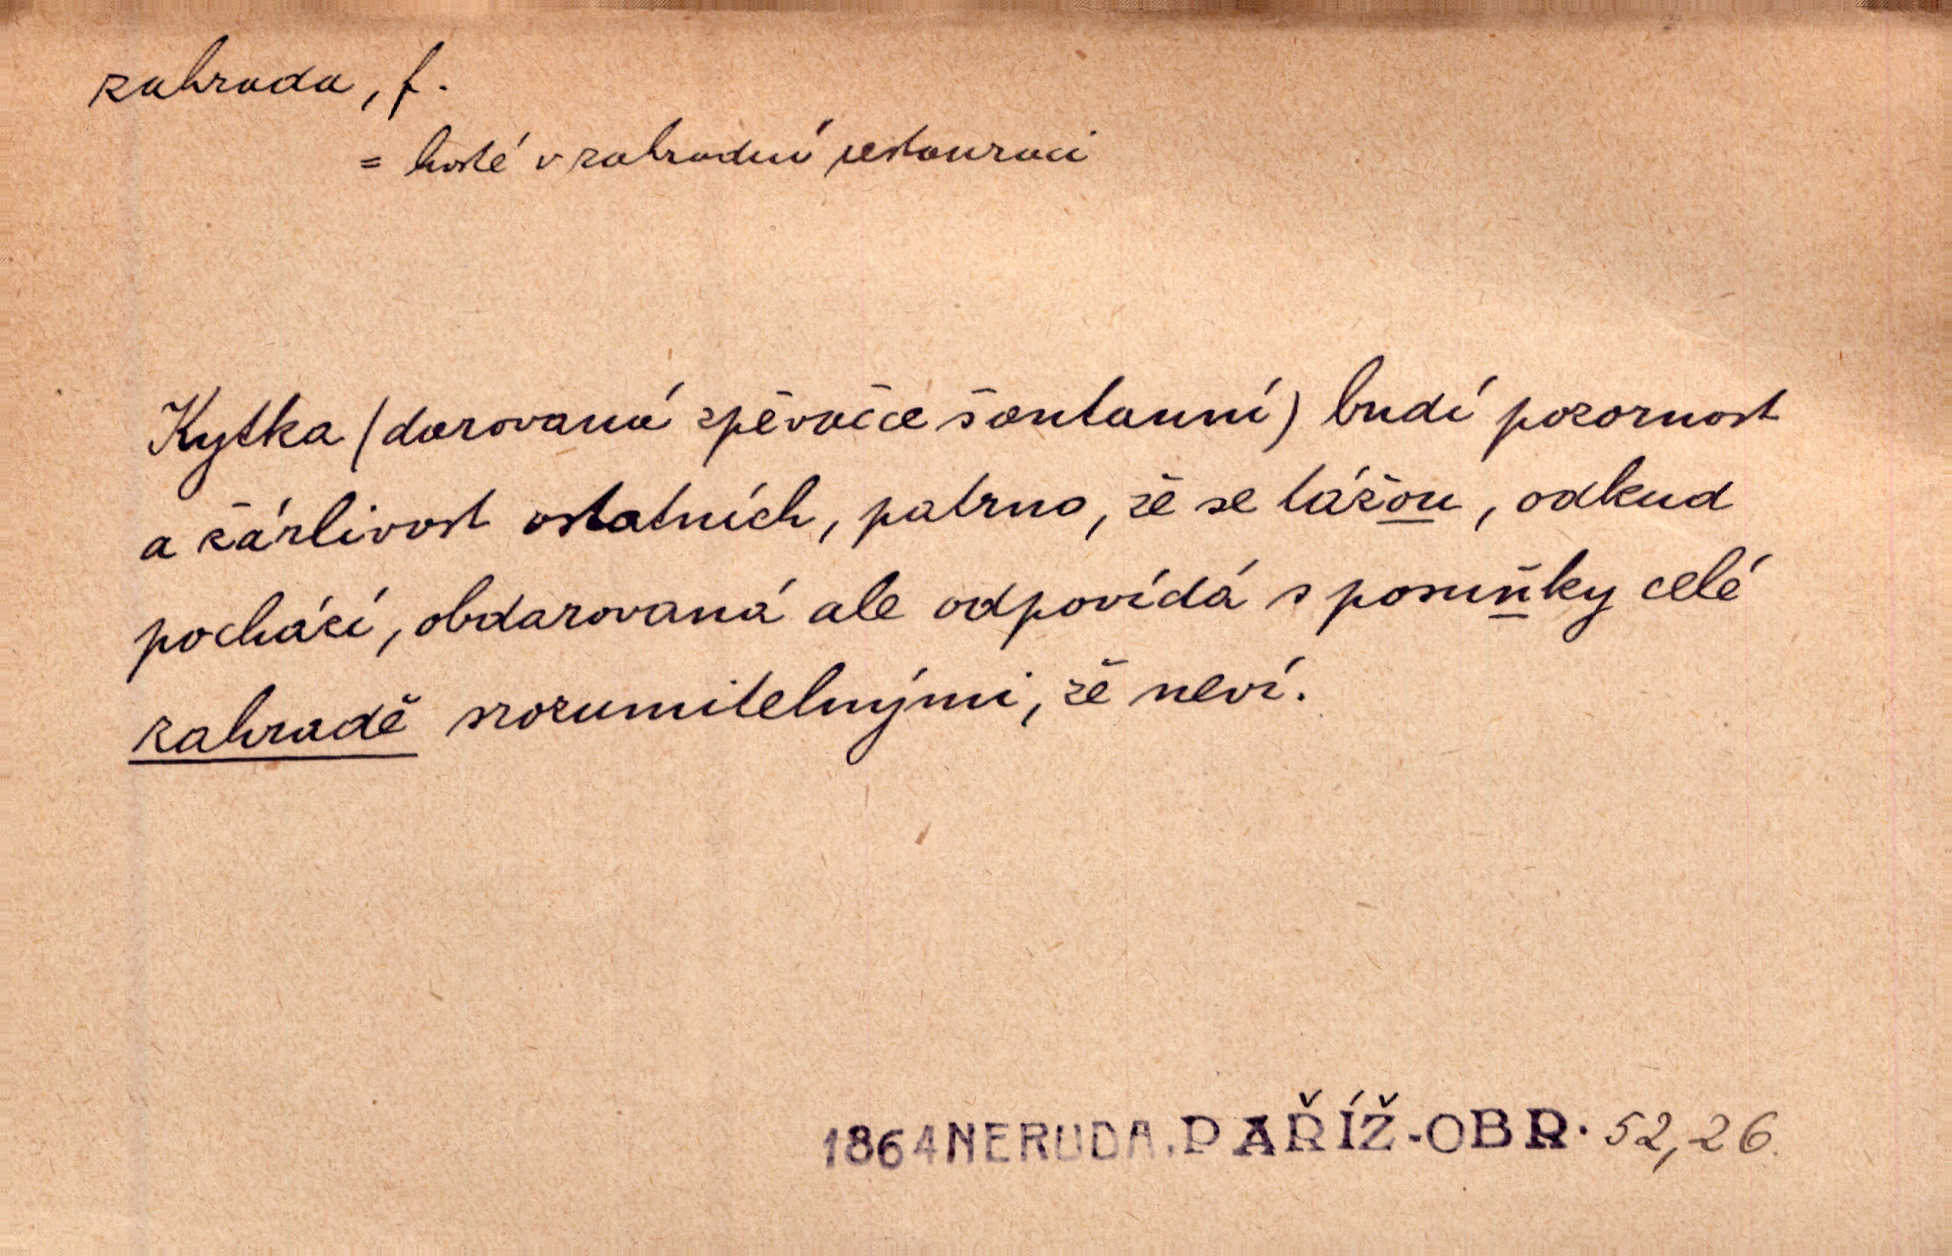 zahrada, f.
= hosté v zahradní restauraci
Kytka (darovaná zpěvačce šantanní) budí pozornost
a žárlivost ostatních, patrno, že se tážou, odkud
pochází, obdarovaná ale odpovídá s posuňky celé
zahradě srozumitelnými, že neví.
1864 NERUDA. PAŘÍŽ-OBR. 52, 26.